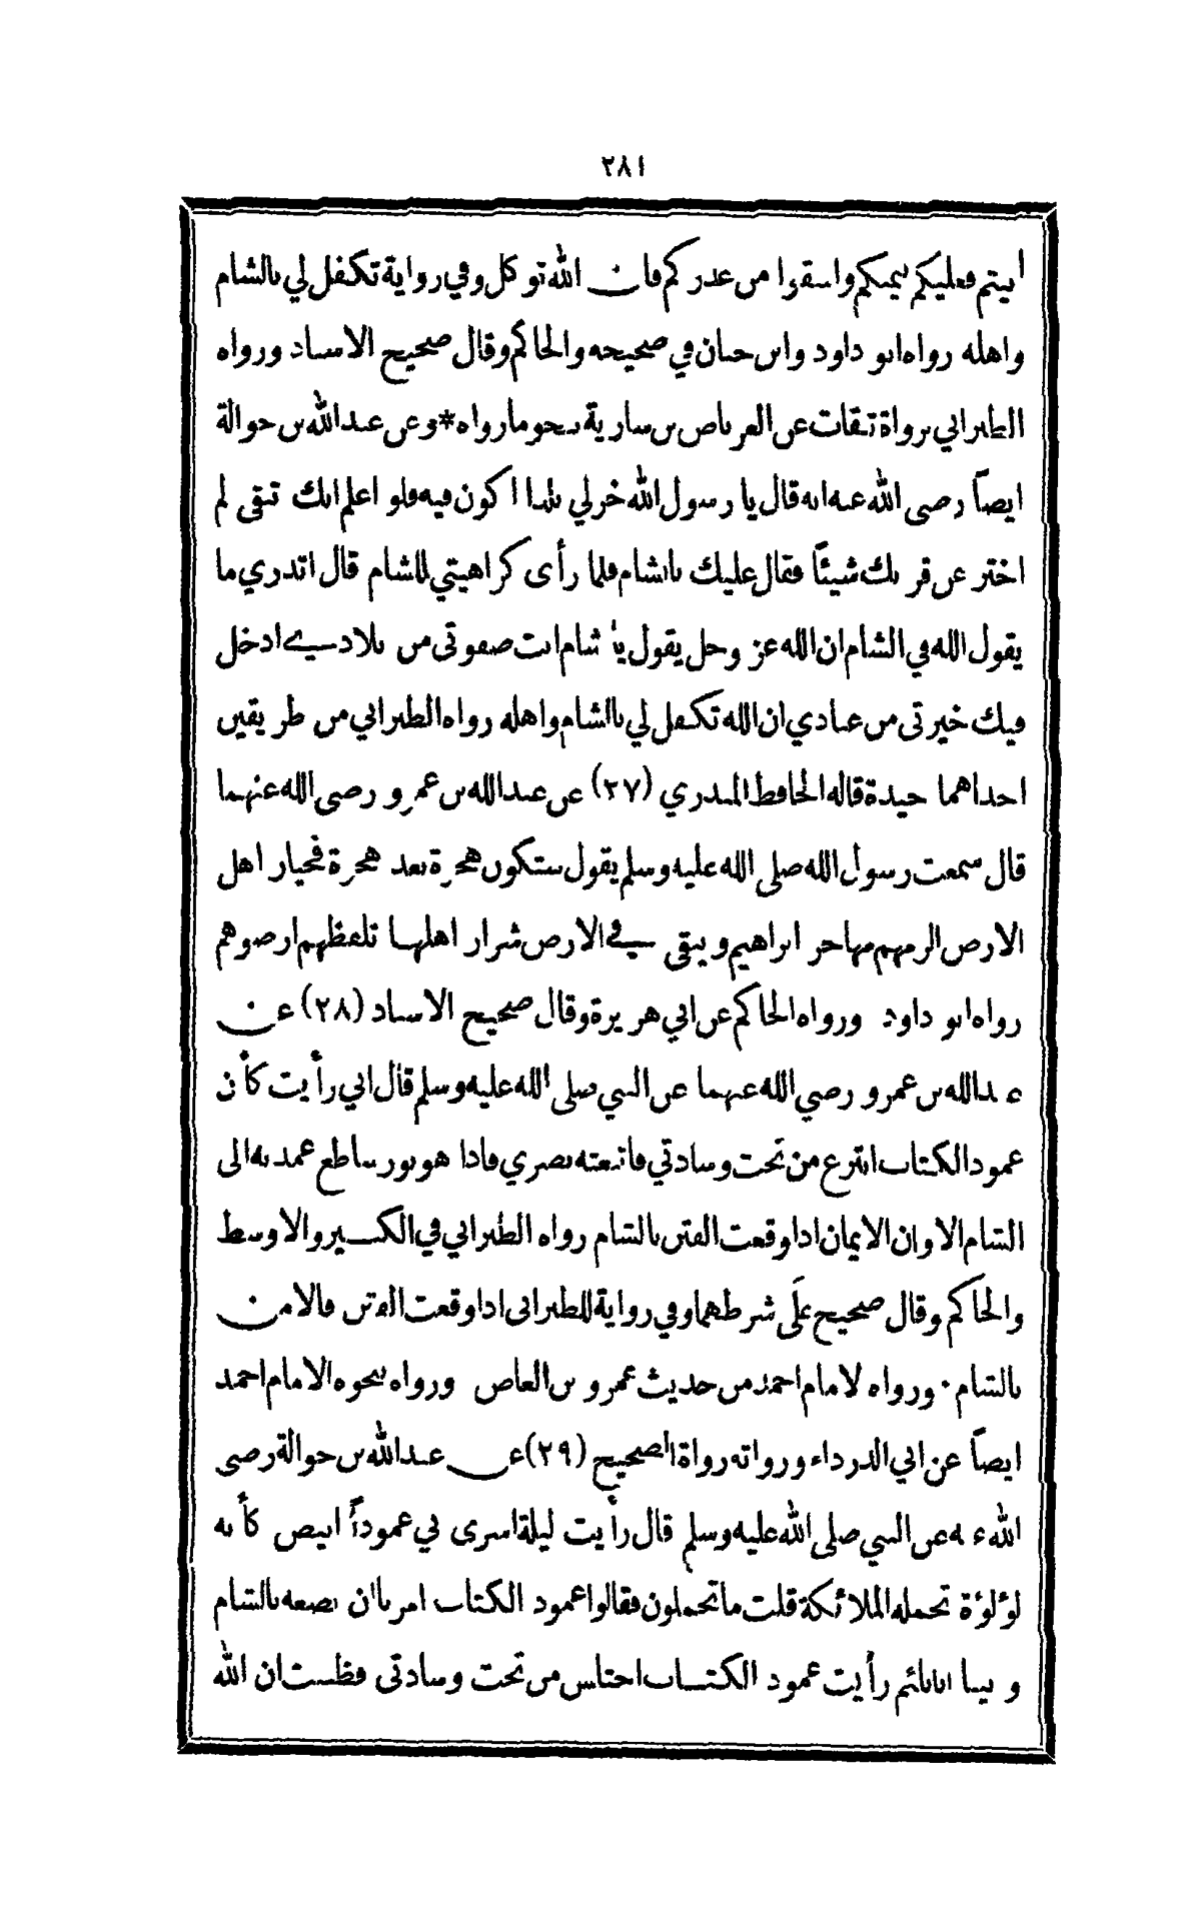 ٢٨١
ابيتم فعليكم بيمنكم واسقوا من غدركم فان الله توكل وفي رواية تكفل لي بالشام
واهله رواه ابو داود وابن حبان في صحيحه والحاكم وقال صحيح الاسناد ورواه
الطبراني برواة ثقات عن العرباض بن سارية بنحو ما رواه * وعن عبدالله بن حوالة
ايضاً رضى الله عنه انه قال يا رسول الله خرلي بلدا اكون فيه فلو اعلم انك تبقى لم
اختر عن قربك شيئاً فقال عليك بالشام فلما رأى كراهيتي للشام قال اتدري ما
يقول الله في الشام ان الله عز وجل يقول يا شام انت صفوتى من بلادي ادخل
فيك خيرتى من عبادي ان الله تكفل لي بالشام واهله رواه الطبراني من طريقين
احداهما جيدة قاله الحافظ المنذري (٢٧) عن عبدالله بن عمرو رضى الله عنهما
قال سمعت رسول الله صلى الله عليه وسلم يقول ستكون هجرة بعد هجرة فخيار اهل
الارض الزمهم مهاجر ابراهيم ويبقى في الارض شرار اهلها تلفظهم ارضوهم
رواه ابو داود ورواه الحاكم عن ابي هريرة وقال صحيح الاسناد (٢٨) عن
عبدالله بن عمرو رضي الله عنهما عن النبي صلى الله عليه وسلم قال اني رأيت كأن
عمود الكتاب انتزع من تحت وسادتي فاتبعته بصري فاذا هو نور ساطع عمد به الى
الشام الا وان الايمان اذا وقعت الفتن بالشام رواه الطبراني في الكبير والاوسط
والحاكم وقال صحيح عَلَى شرطهما وفي رواية للطبرانى اذا وقعت الفتن فالامن
بالشام · ورواه لامام احمد من حديث عمرو بن العاص ورواه بنحوه الامام احمد
ايضاً عن ابي الدرداء ورواته رواة الصحيح (٢٩) عن عبدالله بن حوالة رضى
الله عنه عن النبي صلى الله عليه وسلم قال رأيت ليلة اسرى بي عموداً ابيض كأنه
لؤلؤة تحمله الملائكة قلت ما تحملون فقالوا عمود الكتاب امرنا ان نضعه بالشام
و بينا انا نائم رأيت عمود الكتاب اختلس من تحت وسادتى فظننت ان الله